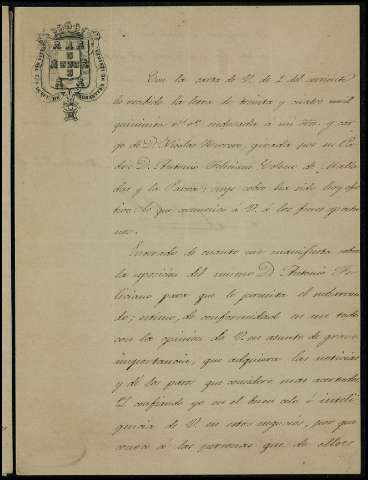 Con la carta de V. de 2 del corriente
he recibido la letra de treinta y cuatro mil
quinientos r.s v.n endosada á mi fvor. y car
go de D. Nicolas Moreno, girada por su Po
der D. Antonio Feliciano de
das y la Parra; cuyo cobro ha sido hoy efec
tivo: lo que comunico á V. á los fines oportu
nos.
Enterado de cuanto me manifiesta sobre
la oposicion del mismo D. Antonio Fe
liciano para que le permita el
do; estimo, de conformidad en un todo
con la opinion de V. en asunto de grave
importancia, que adquiera las noticias
y dé los pasos que considere mas acertados.
Y confiando yo en el buen celo é inteli
gencia de V. en estos negocios, por que
conoce á las personas que de ellos